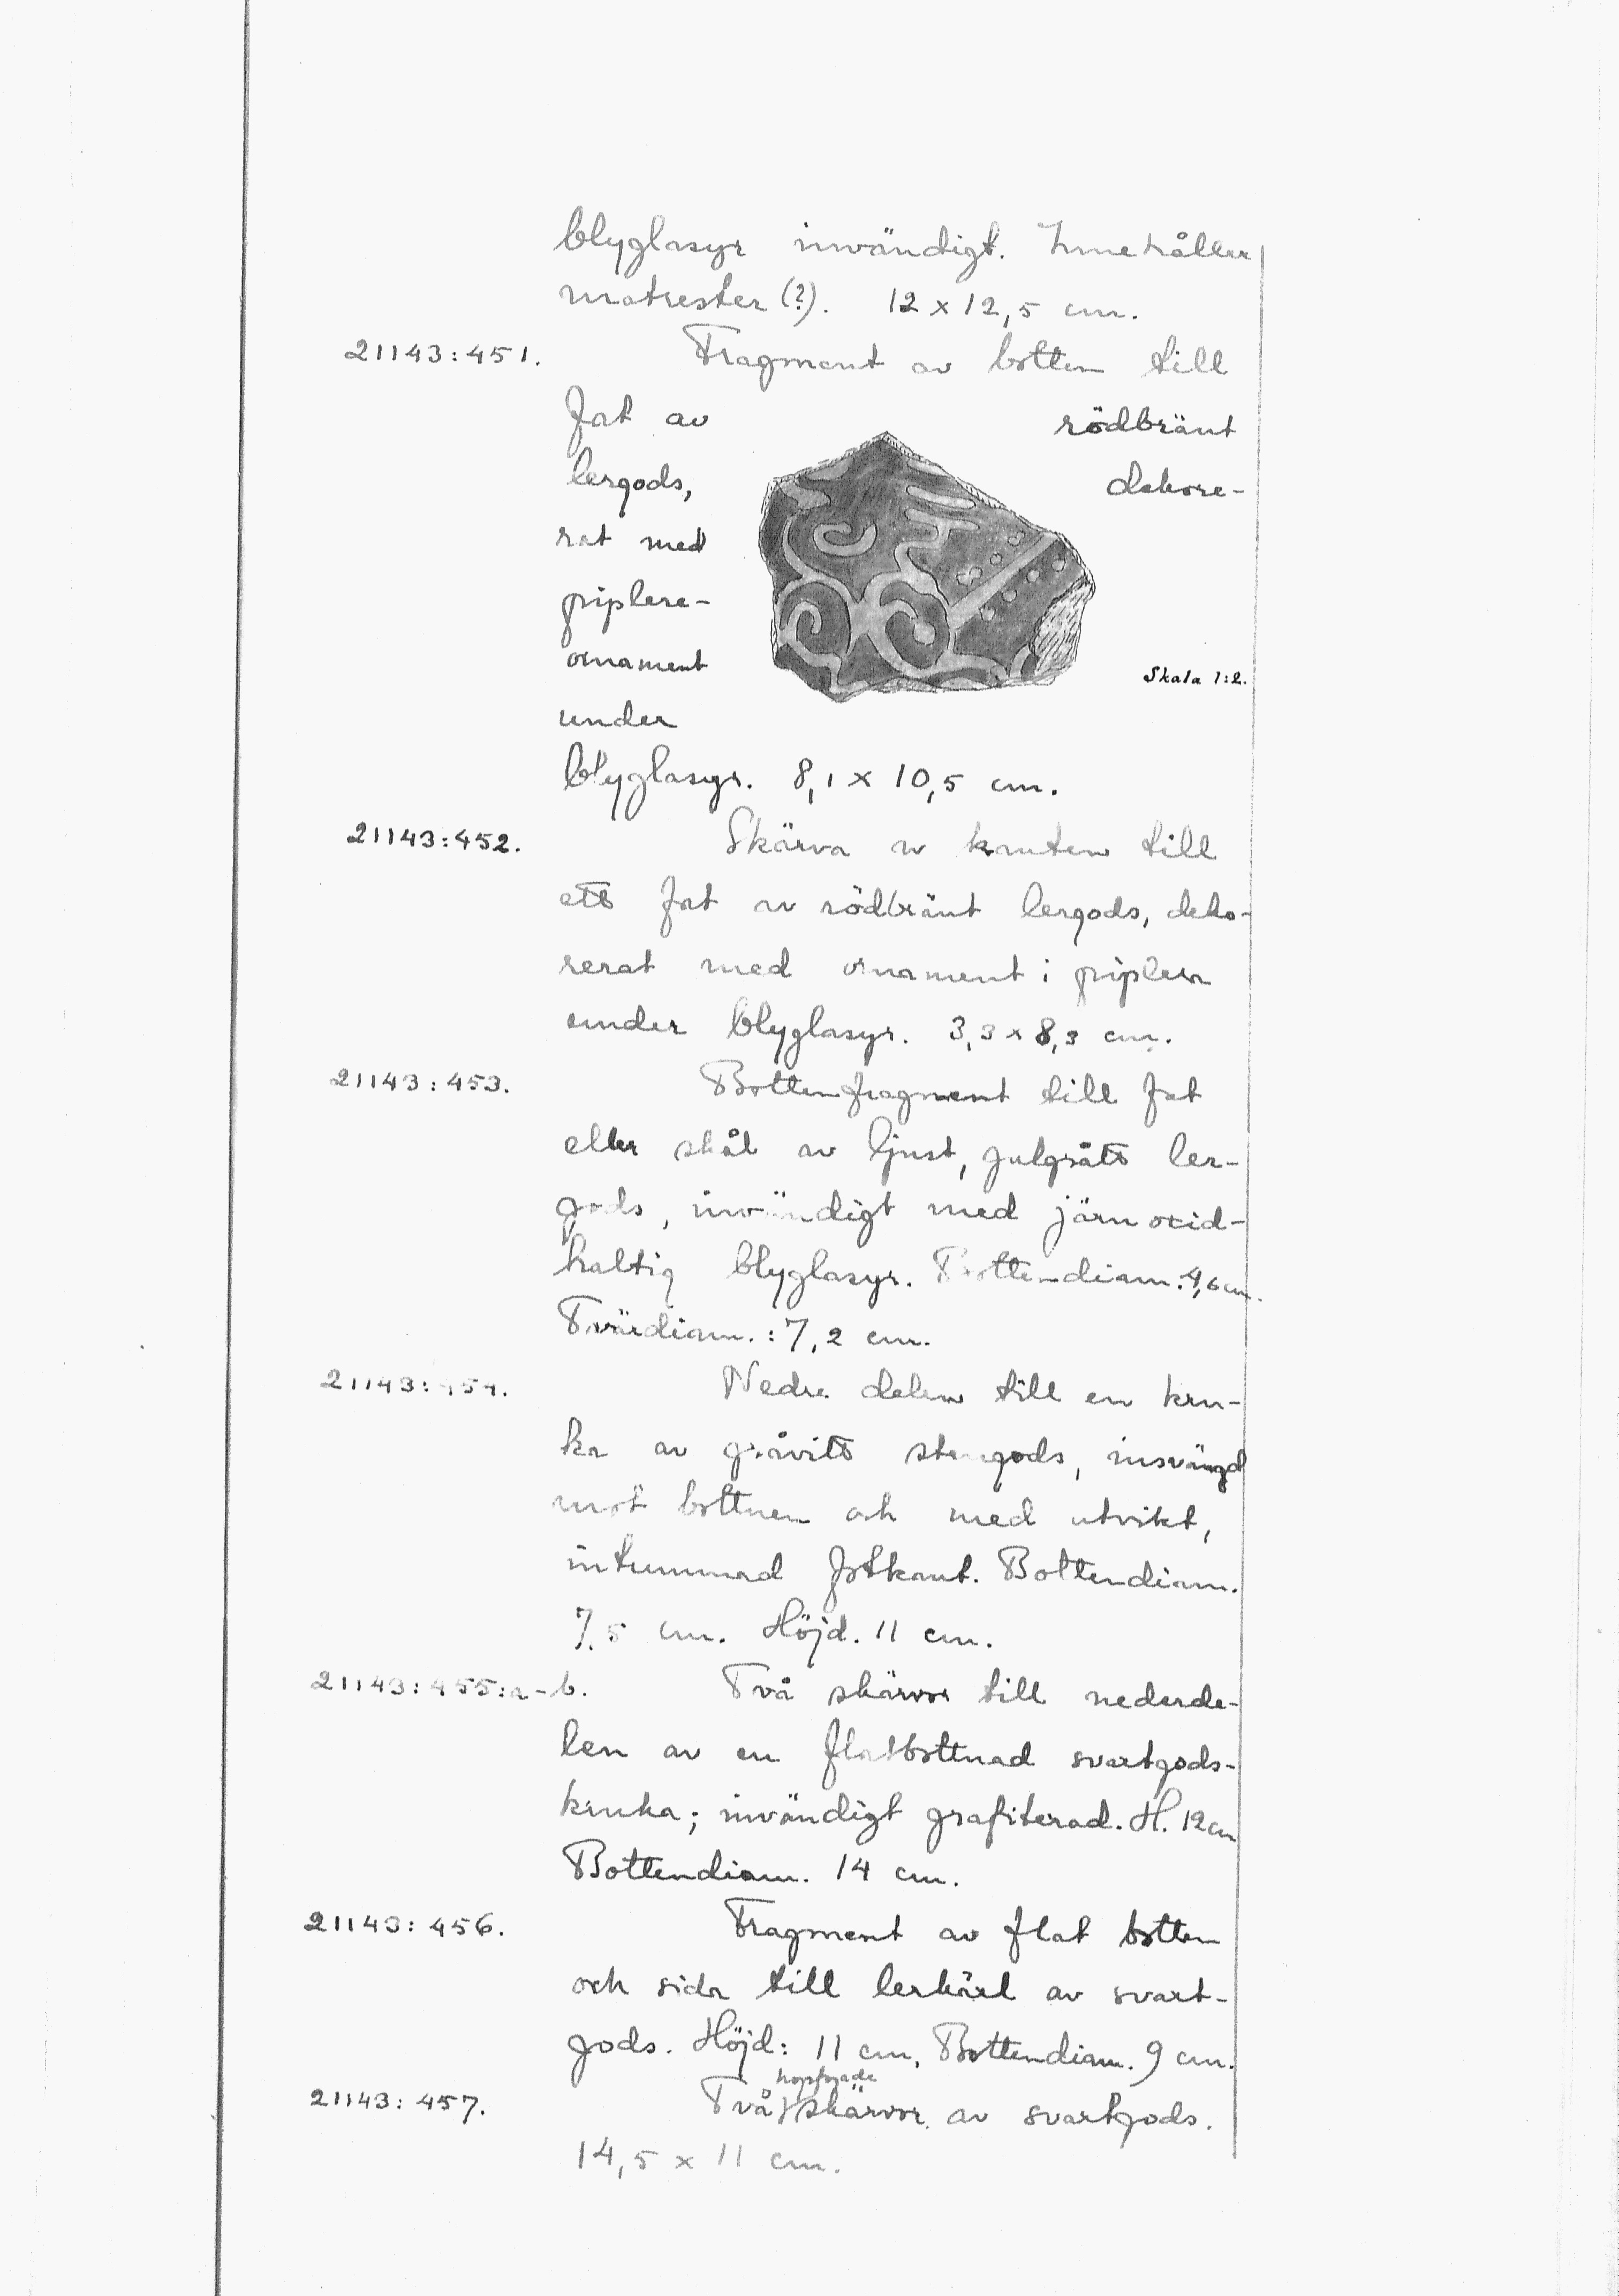 blyglasyr invändigt. Innehåller
matrester (?). 12 x 12,5 cm.
21143:451. Fragment av botten till
fat av rödbränt
lergods, dekore-
rat med
piplere-
ornament
Skala 1:2.
under
blyglasyr. 8,1 x 10,5 cm.
21143:452. Skärva av kanten till
ett fat av rödbränt lergods, deko-
rerat med ornament i piplera
under blyglasyr. 3,3 x 8,3 cm.
21143:453. Bottenfragment till fat
eller skål av ljust, gulgrått ler-
gods, invändigt med järnoxid-
haltig blyglasyr. Bottendiam. 4,6 cm.
Tvärdiam.: 7,2 cm.
21143:454. Nedre delen till en kru-
ka av gråvitt stengods, insvängd
mot bottnen och med utvikt,
intummad fotkant. Bottendiam.
7,5 cm. Höjd. 11 cm.
21143:455:a-b. Två skärvor till nederde-
len av en flatbottnad svartgods-
kruka; invändigt grafiterad. H. 12 cm
Bottendiam. 14 cm.
21143:456. Fragment av flat botten
och sida till lerkärl av svart-
gods. Höjd: 11 cm. Bottendiam. 9 cm.
hopfogade
21143:457. Två skärvor av svartgods.
14,5 x 11 cm.